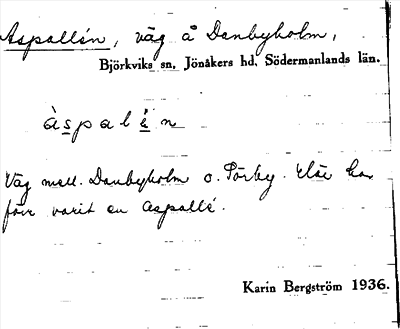 Aspallén, väg å Danbyholm,
Björkviks sn, Jönåkers hd, Södermanlands län.
àspalén
Väg mell. Danbyholm o. Törby. Där har
förr varit en aspallé.
Karin Bergström 1936.